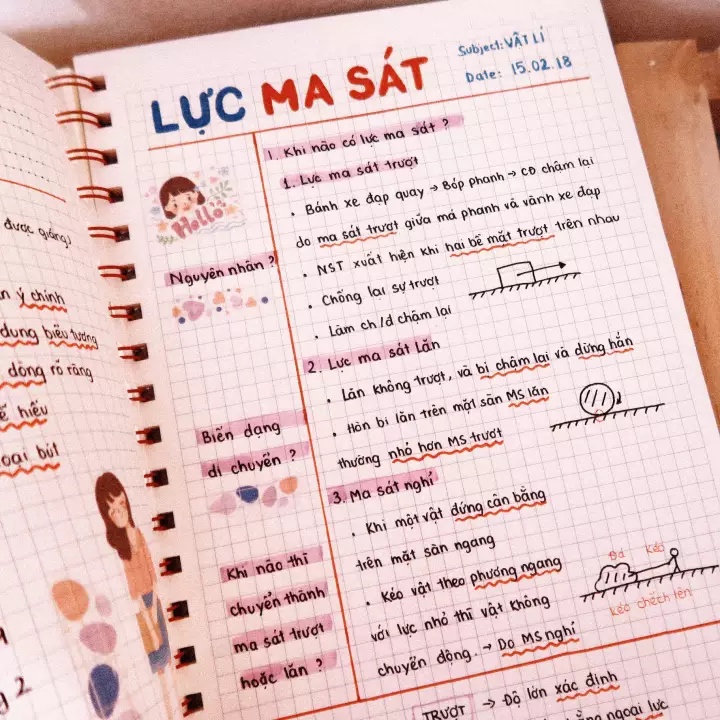 được giảng)
ý chính
dung biểu tượng
dòng rõ ràng
hiểu
bút
2
Subject: VẬT LÍ
Date: 15.02.18
LỰC MA SÁT
Hello
Nguyên nhân?
Biến dạng
di chuyển?
Khi nào thì
chuyển thành
ma sát trượt
hoặc lăn?
I. Khi nào có lực ma sát?
1. Lực ma sát trượt
• Bánh xe đạp quay → Bóp phanh → CĐ chậm lại
do ma sát trượt giữa má phanh và vành xe đạp
• NST xuất hiện khi hai bề mặt trượt trên nhau
• Chống lại sự trượt
• Làm ch/đ chậm lại
2. Lực ma sát lăn
• Lăn không trượt, và bị chậm lại và dừng hẳn
• Hòn bi lăn trên mặt sàn MS lăn
thường nhỏ hơn MS trượt
3. Ma sát nghỉ
• Khi một vật đứng cân bằng
trên mặt sàn ngang
• Kéo vật theo phương ngang
với lực nhỏ thì vật không
chuyển động. → Do MS nghỉ
Đá
Kéo
Kéo chếch lên
TRƯỢT → Độ lớn xác định
ngoại lực